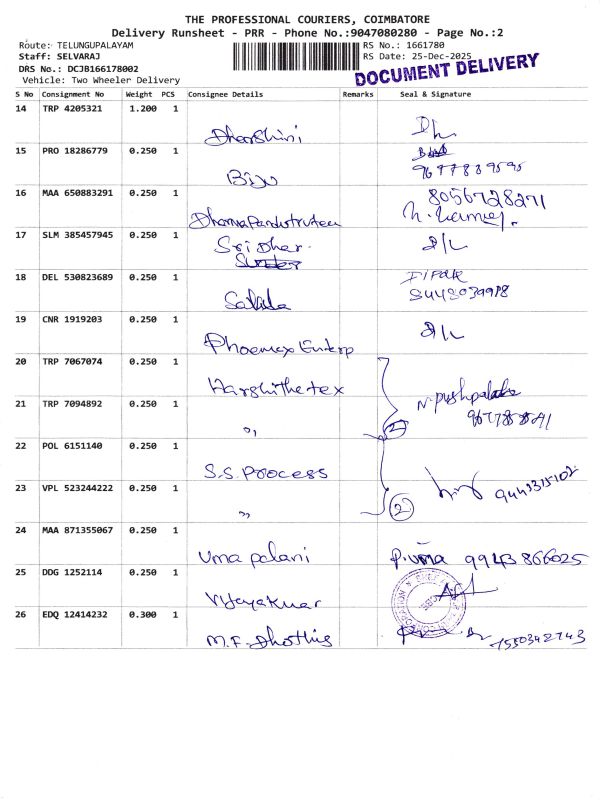 THE PROFESSIONAL COURIERS, COIMBATORE
Delivery Runsheet - PRR - Phone No.:9047080280 - Page No.:2
Route: TELUNGUPALAYAM RS No.: 1661780
Staff: SELVARAJ RS Date: 25-Dec-2025
DRS No.: DCJB166178002
Vehicle: Two Wheeler Delivery
DOCUMENT DELIVERY
S No Consignment No Weight PCS Consignee Details Remarks Seal & Signature
14 TRP 4205321 1.200 1
Dharshini
15 PRO 18286779 0.250 1
Biju
16 MAA 650883291 0.250 1 8056728271
17 SLM 385457945 0.250 1 Sri Dhar. D/L
18 DEL 530823689 0.250 1
19 CNR 1919203 0.250 1 D/L
Phoenix Enterp
20 TRP 7067074 0.250 1 Harshithe tex
21 TRP 7094892 0.250 1 N. pushpalatha
" 2
22 POL 6151140 0.250 1
S.S. Process
23 VPL 523244222 0.250 1 9443315102
" 2
24 MAA 871355067 0.250 1
Uma palani P. uma 9943866025
25 DDG 1252114 0.250 1
Vijayakumar
26 EDQ 12414232 0.300 1
M.F. Dhothis 7550342743